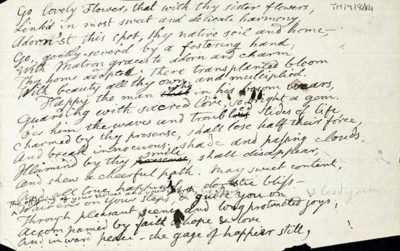 TM/9/8/04
Go lovely flower, that with thy sister flowers,
Link'd in most sweet and delicate harmony
Adorn'st this spot, thy native soil and home—
Go, gently sever'd by a fostering hand,
With Matron graces to adorn and charm
Thy home adopted; there transplanted bloom
With beauty all thy own and multiplied.
Happy the man in his bosom wears,
Guarding with sacred love, so bright a gem.
For him the waves and troubled tides of life,
Charmed by thy presense, shall lose half their force,
And break innocuous; shade and passing clouds,
Illumined by thy smile, shall disappear,
And shew a cheerful path. May sweet content,
bliss—
on your steps, & guide you on
Through pleasant scenes and long protracted joys,
Accompanied by faith & hope & love
And inward peace—the gage of happier still,